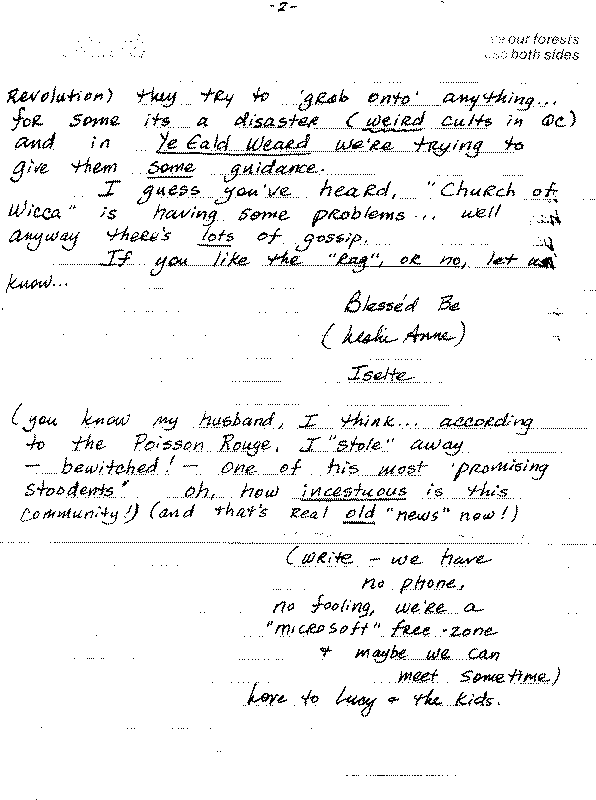 -2-
our forests
both sides
Revolution) they try to 'grab onto' anything...
for some its a disaster (weird cults in QC)
and in Ye Eald Weard we're trying to
give them some guidance.
I guess you've heard, "Church of
Wicca" is having some problems... well
anyway there's lots of gossip.
If you like the "Rag", or no, let us
know...
Blesséd Be
(Leslie Anne)
Isette
(you know my husband, I think... according
to the Poisson Rouge, I "stole" away
- bewitched! - one of his most 'promising
stoodents" oh, how incestuous is this
community!) (and that's real old "news" now!)
(write - we have
no phone,
no fooling, we're a
"microsoft" free-zone
+ maybe we can
meet sometime)
Love to Lucy + the kids.